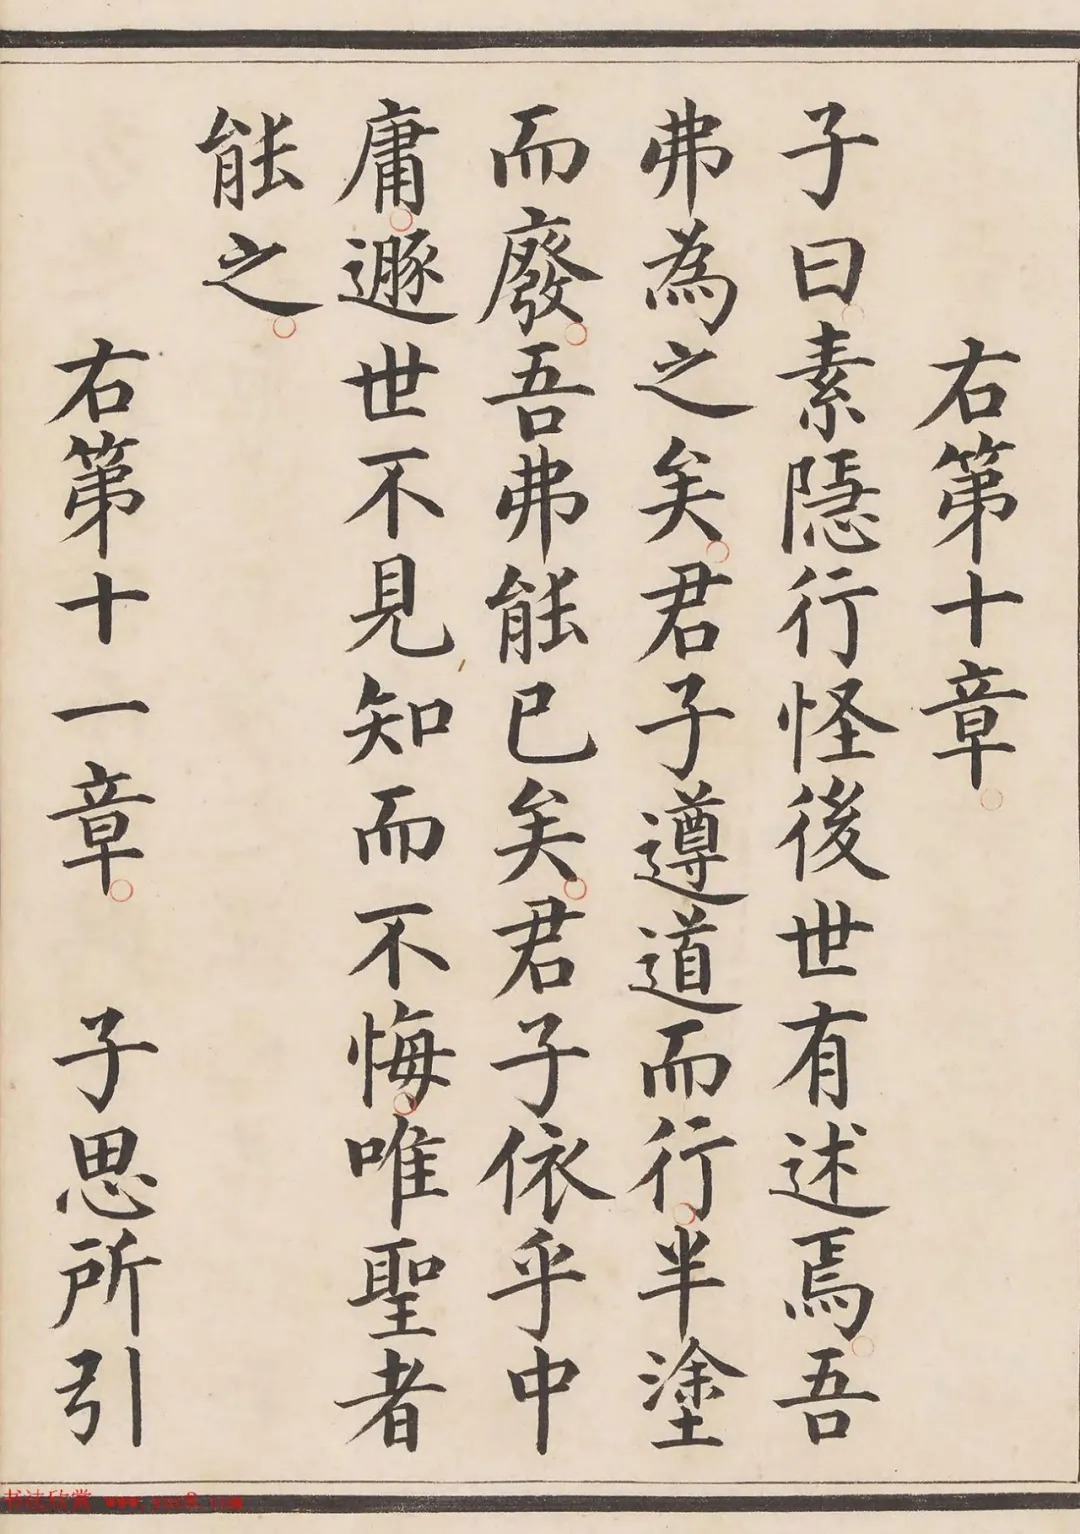 右第十章
子曰素隱行怪後世有述焉吾
弗為之矣君子遵道而行半塗
而廢吾弗能已矣君子依乎中
庸遯世不見知而不悔唯聖者
能之
右第十一章 子思所引
书法欣赏